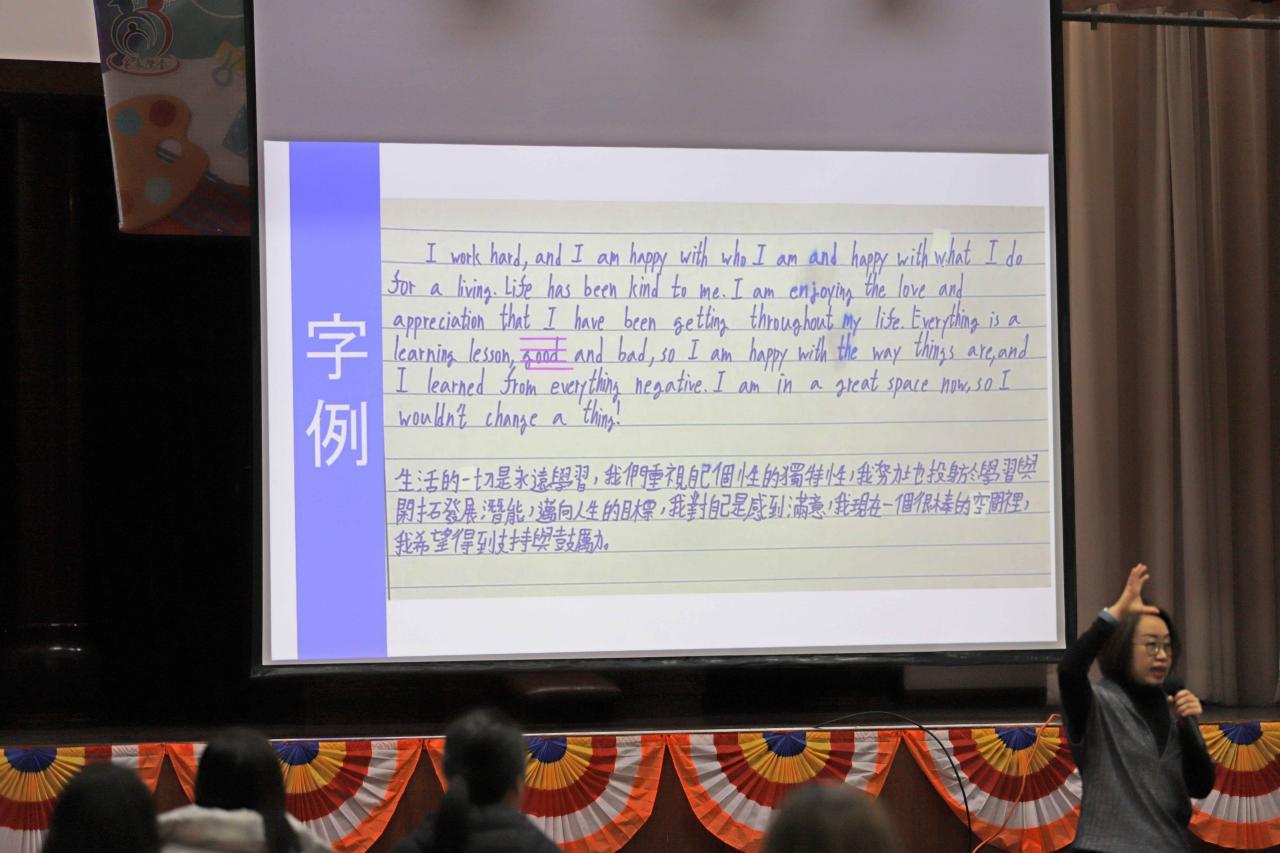 字例
I work hard, and I am happy with who I am and happy with what I do
for a living. Life has been kind to me. I am enjoying the love and
appreciation that I have been getting throughout my life. Everything is a
learning lesson, good and bad, so I am happy with the way things are, and
I learned from everything negative. I am in a great space now, so I
wouldn't change a thing!
生活的一切是永遠學習，我們重視自己個性的獨特性，我努力地投身於學習與
開拓發展潛能，邁向人生的目標，我對自己是感到滿意，我現在一個很棒的空間裡，
我希望得到支持與鼓勵。